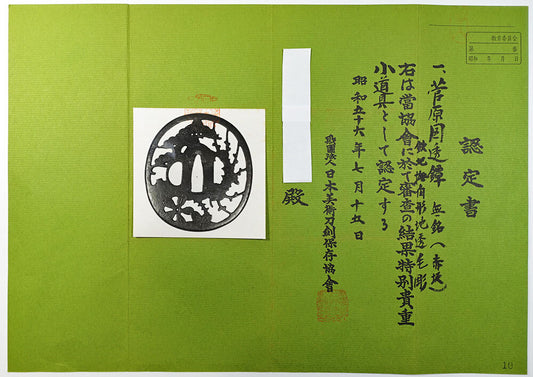 認定書
一、菅原図透鐔 無銘(赤坂)
鉄地撫角形地透毛彫
右は當協會に於て審査の結果特別貴重
小道具として認定する
昭和五十六年七月十五日
財團法人日本美術刀剣保存協會
殿
教育委員会
第 番
昭和 年 月 日
10